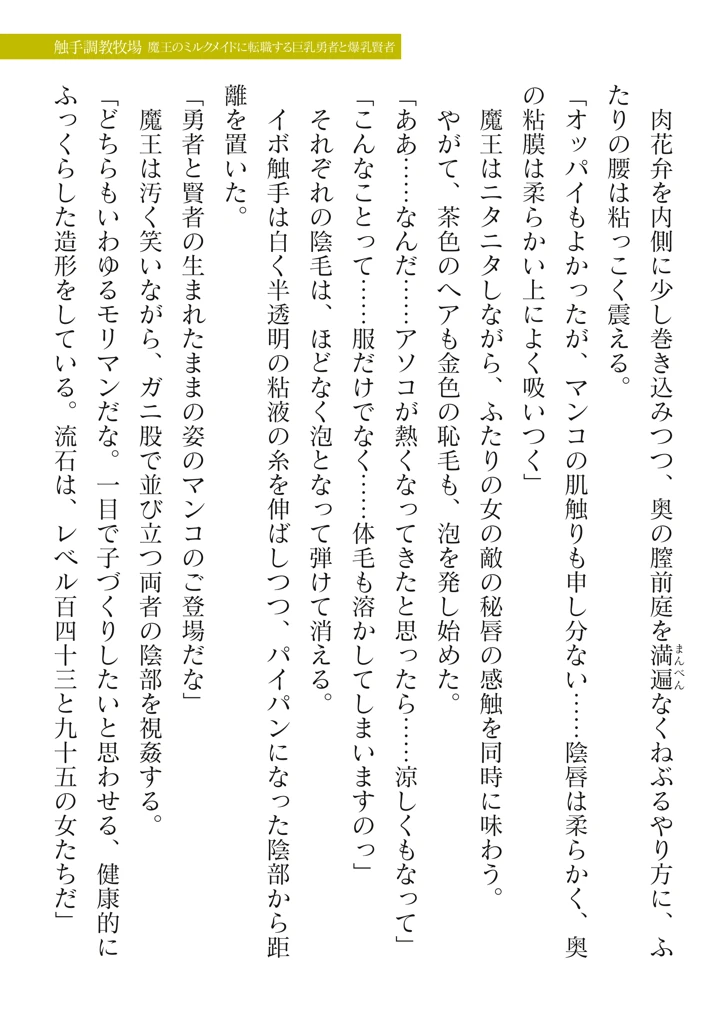 触手調教牧場 魔王のミルクメイドに転職する巨乳勇者と爆乳賢者
肉花弁を内側に少し巻き込みつつ、奥の膣前庭を満遍なくねぶるやり方に、ふ
まんべん
たりの腰は粘っこく震える。
「オッパイもよかったが、マンコの肌触りも申し分ない……陰唇は柔らかく、奥
の粘膜は柔らかい上によく吸いつく」
魔王はニタニタしながら、ふたりの女の敵の秘唇の感触を同時に味わう。
やがて、茶色のヘアも金色の恥毛も、泡を発し始めた。
「ああ……なんだ……アソコが熱くなってきたと思ったら……涼しくもなって」
「こんなことって……服だけでなく……体毛も溶かしてしまいますのっ」
それぞれの陰毛は、ほどなく泡となって弾けて消える。
イボ触手は白く半透明の粘液の糸を伸ばしつつ、パイパンになった陰部から距
離を置いた。
「勇者と賢者の生まれたままの姿のマンコのご登場だな」
魔王は汚く笑いながら、ガニ股で並び立つ両者の陰部を視姦する。
「どちらもいわゆるモリマンだな。一目で子づくりしたいと思わせる、健康的に
ふっくらした造形をしている。流石は、レベル百四十三と九十五の女たちだ」